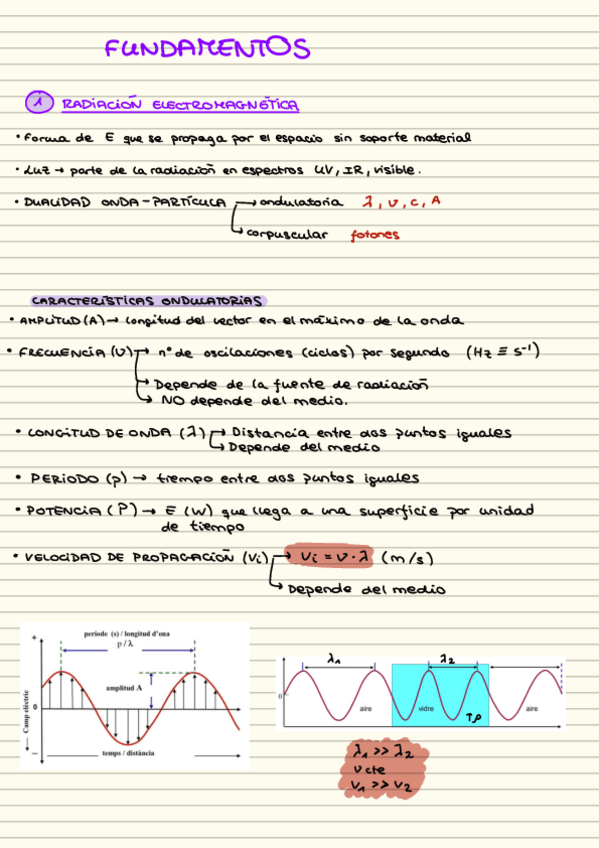 FUNDAMENTOS
1 RADIACIÓN ELECTROMAGNÉTICA
• Forma de E que se propaga por el espacio sin soporte material
• Luz → parte de la radiación en espectros UV, IR, visible.
• DUALIDAD ONDA-PARTÍCULA → ondulatoria λ, ν, c, A
→ corpuscular fotones
CARACTERÍSTICAS ONDULATORIAS
• AMPLITUD (A) → longitud del vector en el máximo de la onda
• FRECUENCIA (ν) → nº de oscilaciones (ciclos) por segundo (Hz ≡ s⁻¹)
→ Depende de la fuente de radiación
→ NO depende del medio.
• LONGITUD DE ONDA (λ) → Distancia entre dos puntos iguales
→ Depende del medio
• PERIODO (p) → tiempo entre dos puntos iguales
• POTENCIA (P) → E (W) que llega a una superficie por unidad
de tiempo
• VELOCIDAD DE PROPAGACIÓN (Vi) → Vi = ν · λ (m/s)
→ Depende del medio
període (s) / longitud d'ona
p / λ
+
amplitud A
0
Camp elèctric
–
temps / distància
λ1 λ2
0
aire vidre aire
λ1 >> λ2
ν cte
V1 >> V2